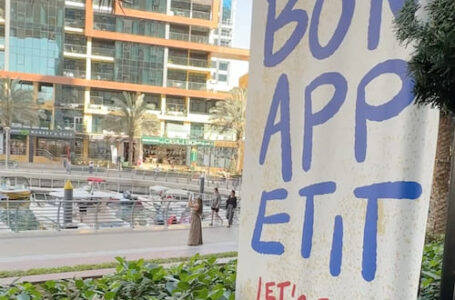 BON
APP
ETIT
LET'S